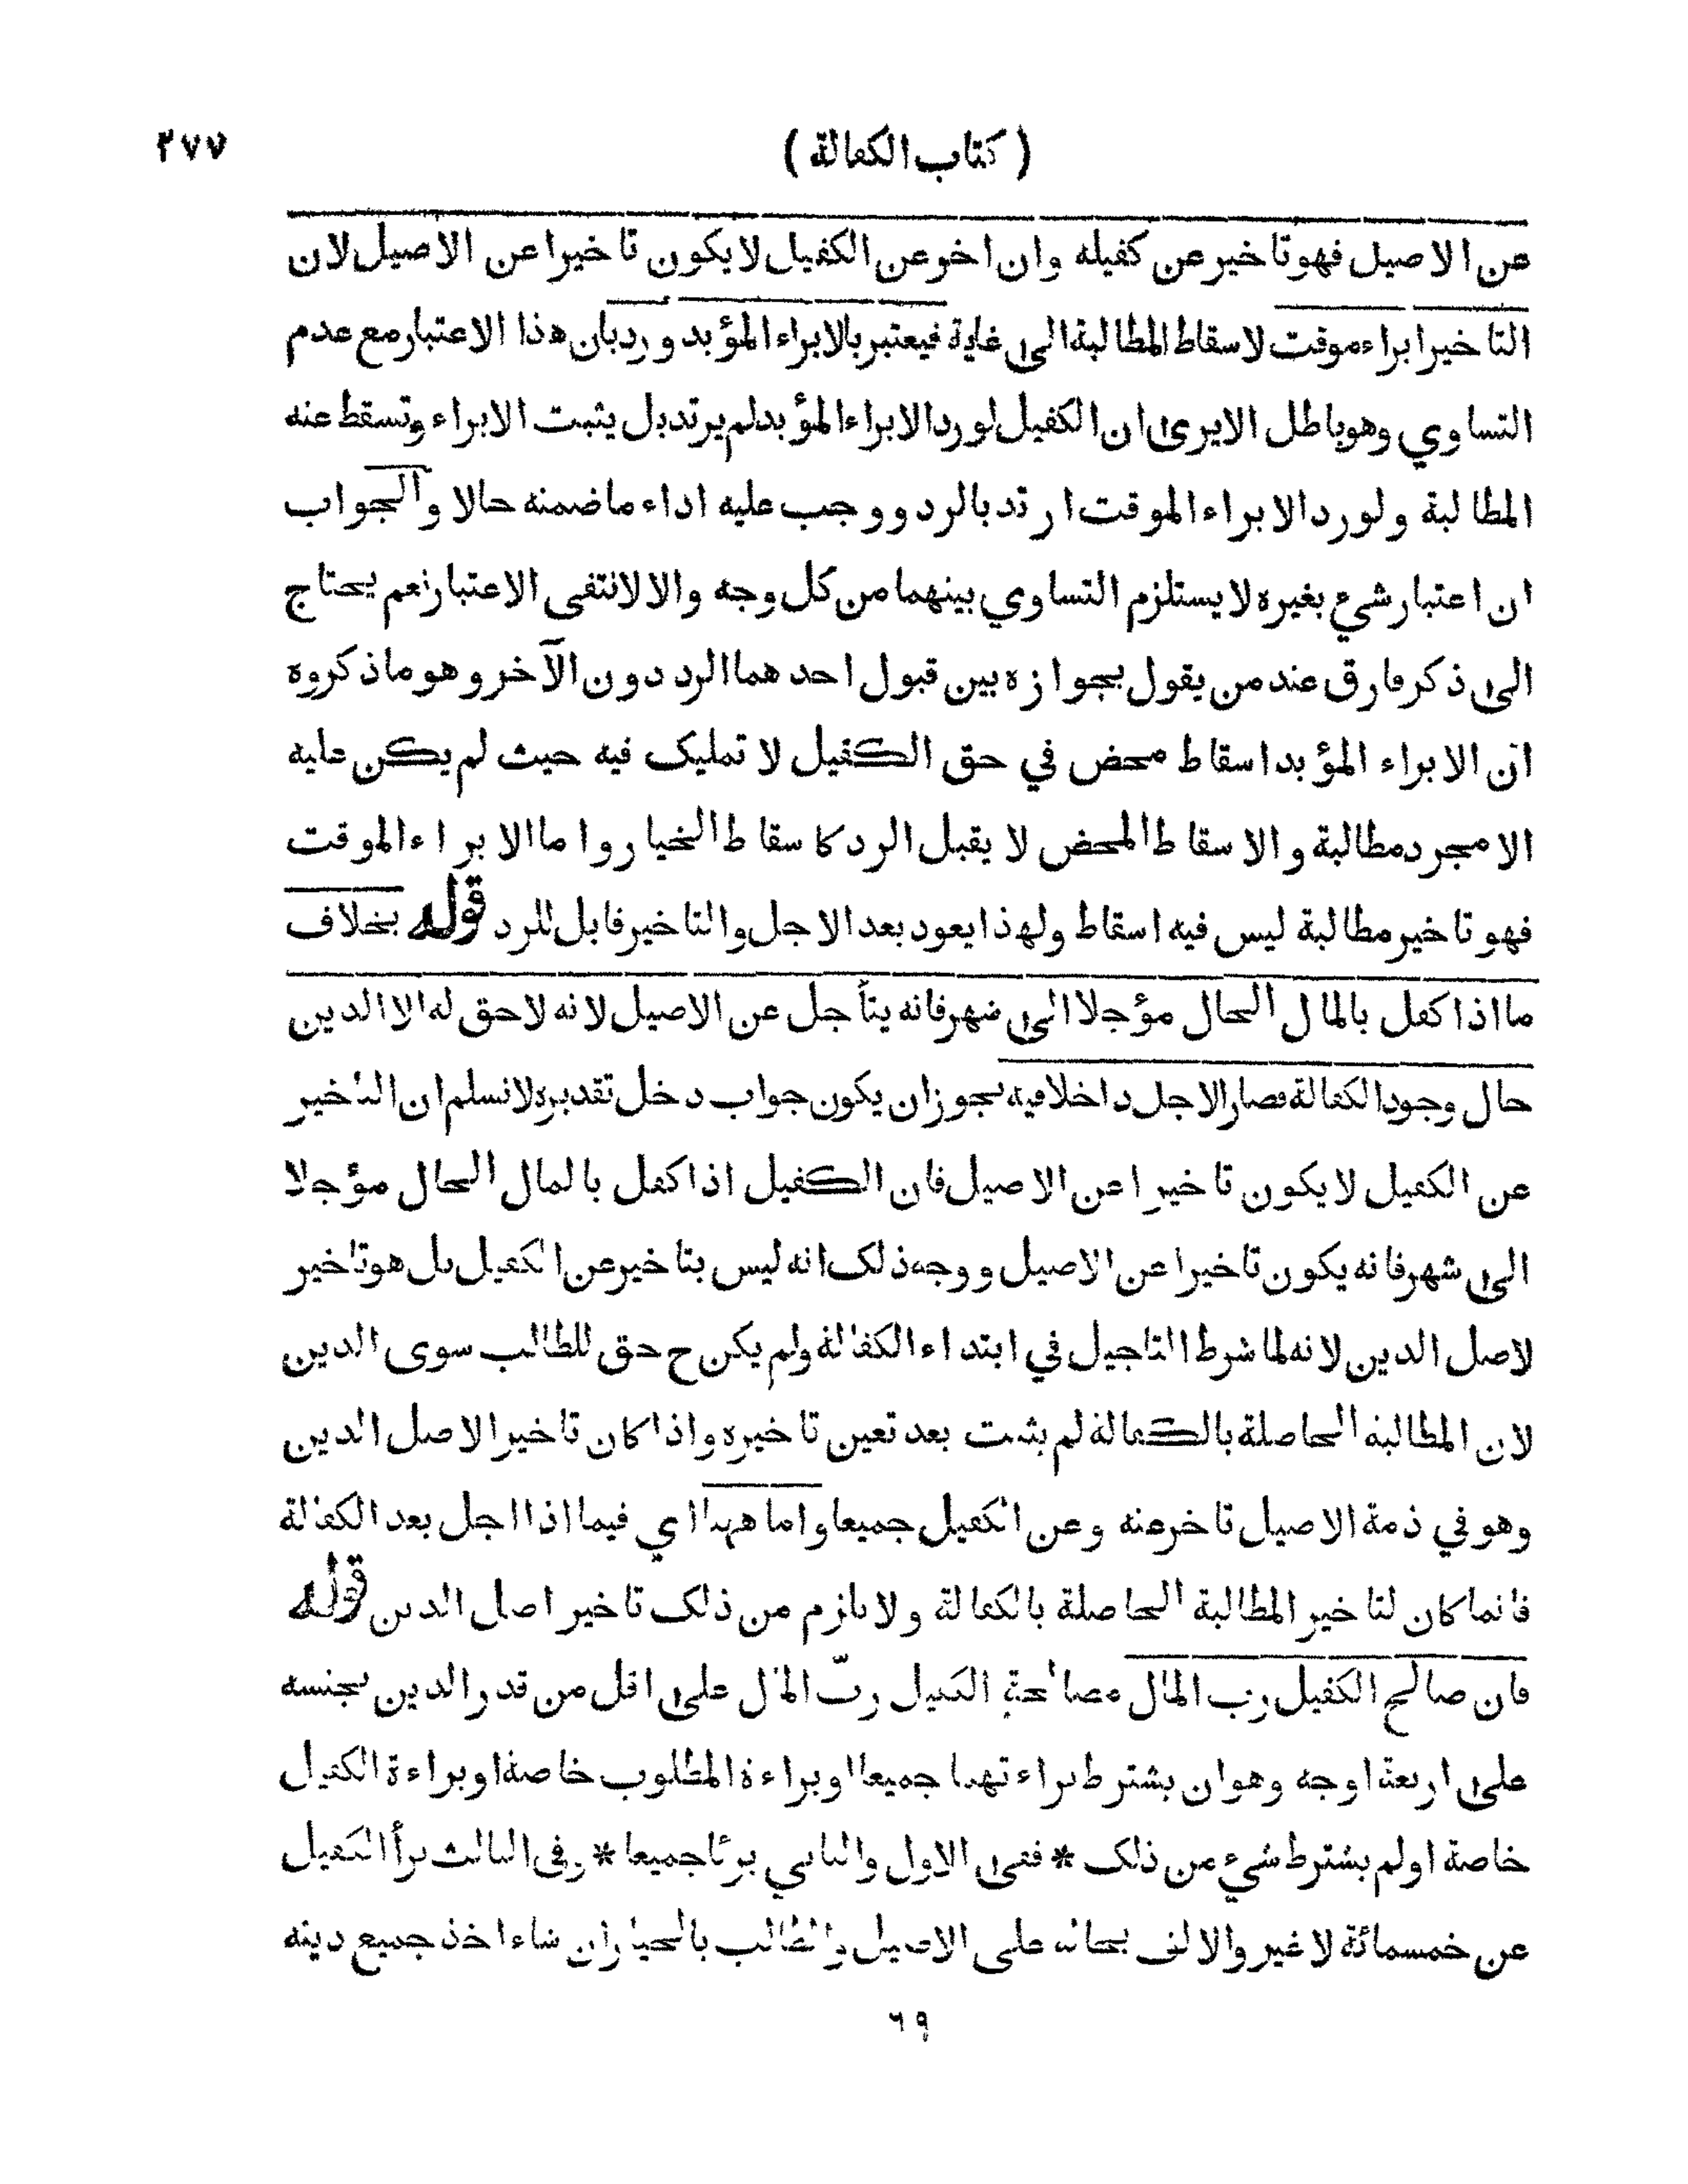 ( كتاب الكفالة )
٢٧٧
عن الاصيل فهو تاخير عن كفيله وان اخر عن الكفيل لا يكون تاخيرا عن الاصيل لان
التاخير ابراء موقت لاسقاط المطالبة الى غاية فيعتبر بالابراء المؤبد ورد بان هذا الاعتبار مع عدم
التساوي وهو باطل الا يرى ان الكفيل لو رد الابراء المؤبد لم يرتد بل يثبت الابراء وتسقط عنه
المطالبة ولو رد الابراء الموقت ارتد بالرد ووجب عليه اداء ما ضمنه حالا والجواب
ان اعتبار شيء بغيره لا يستلزم التساوي بينهما من كل وجه والا لانتفى الاعتبار نعم يحتاج
الى ذكر فارق عند من يقول بجوازه بين قبول احدهما الرد دون الآخر وهو ما ذكروه
ان الابراء المؤبد اسقاط محض في حق الكفيل لا تمليك فيه حيث لم يكن عليه
الا مجرد مطالبة والاسقاط المحض لا يقبل الرد كاسقاط الخيار واما الابراء الموقت
فهو تاخير مطالبة ليس فيه اسقاط ولهذا يعود بعد الاجل والتاخير قابل للرد قوله بخلاف
ما اذا كفل بالمال الحال مؤجلا الى شهر فانه يتأجل عن الاصيل لانه لا حق له الا الدين
حال وجود الكفالة فصار الاجل داخلا فيه يجوز ان يكون جواب دخل تقديره لا نسلم ان التاخير
عن الكفيل لا يكون تاخيرا عن الاصيل فان الكفيل اذا كفل بالمال الحال مؤجلا
الى شهر فانه يكون تاخيرا عن الاصيل ووجه ذلك انه ليس بتاخير عن الكفيل بل هو تاخير
لاصل الدين لانه لما شرط التاجيل في ابتداء الكفالة ولم يكن ح حق للطالب سوى الدين
لان المطالبة الحاصلة بالكفالة لم يثبت بعد تعين تاخيره واذا كان تاخيرا لاصل الدين
وهو في ذمة الاصيل تاخر عنه وعن الكفيل جميعا واما ههنا اي فيما اذا اجل بعد الكفالة
فانما كان لتاخير المطالبة الحاصلة بالكفالة ولا يلزم من ذلك تاخير اصل الدين قوله
فان صالح الكفيل رب المال مصالحة الكفيل ربّ المال على اقل من قدر الدين بجنسه
على اربعة اوجه وهو ان يشترط براءتهما جميعا او براءة المطلوب خاصة او براءة الكفيل
خاصة او لم يشترط شيء من ذلك * ففى الاول والثاني برئا جميعا * وفى الثالث برأ الكفيل
عن خمسمائة لا غير والالف بحاله على الاصيل والطالب بالخيار ان شاء اخذ جميع دينه
٦٩